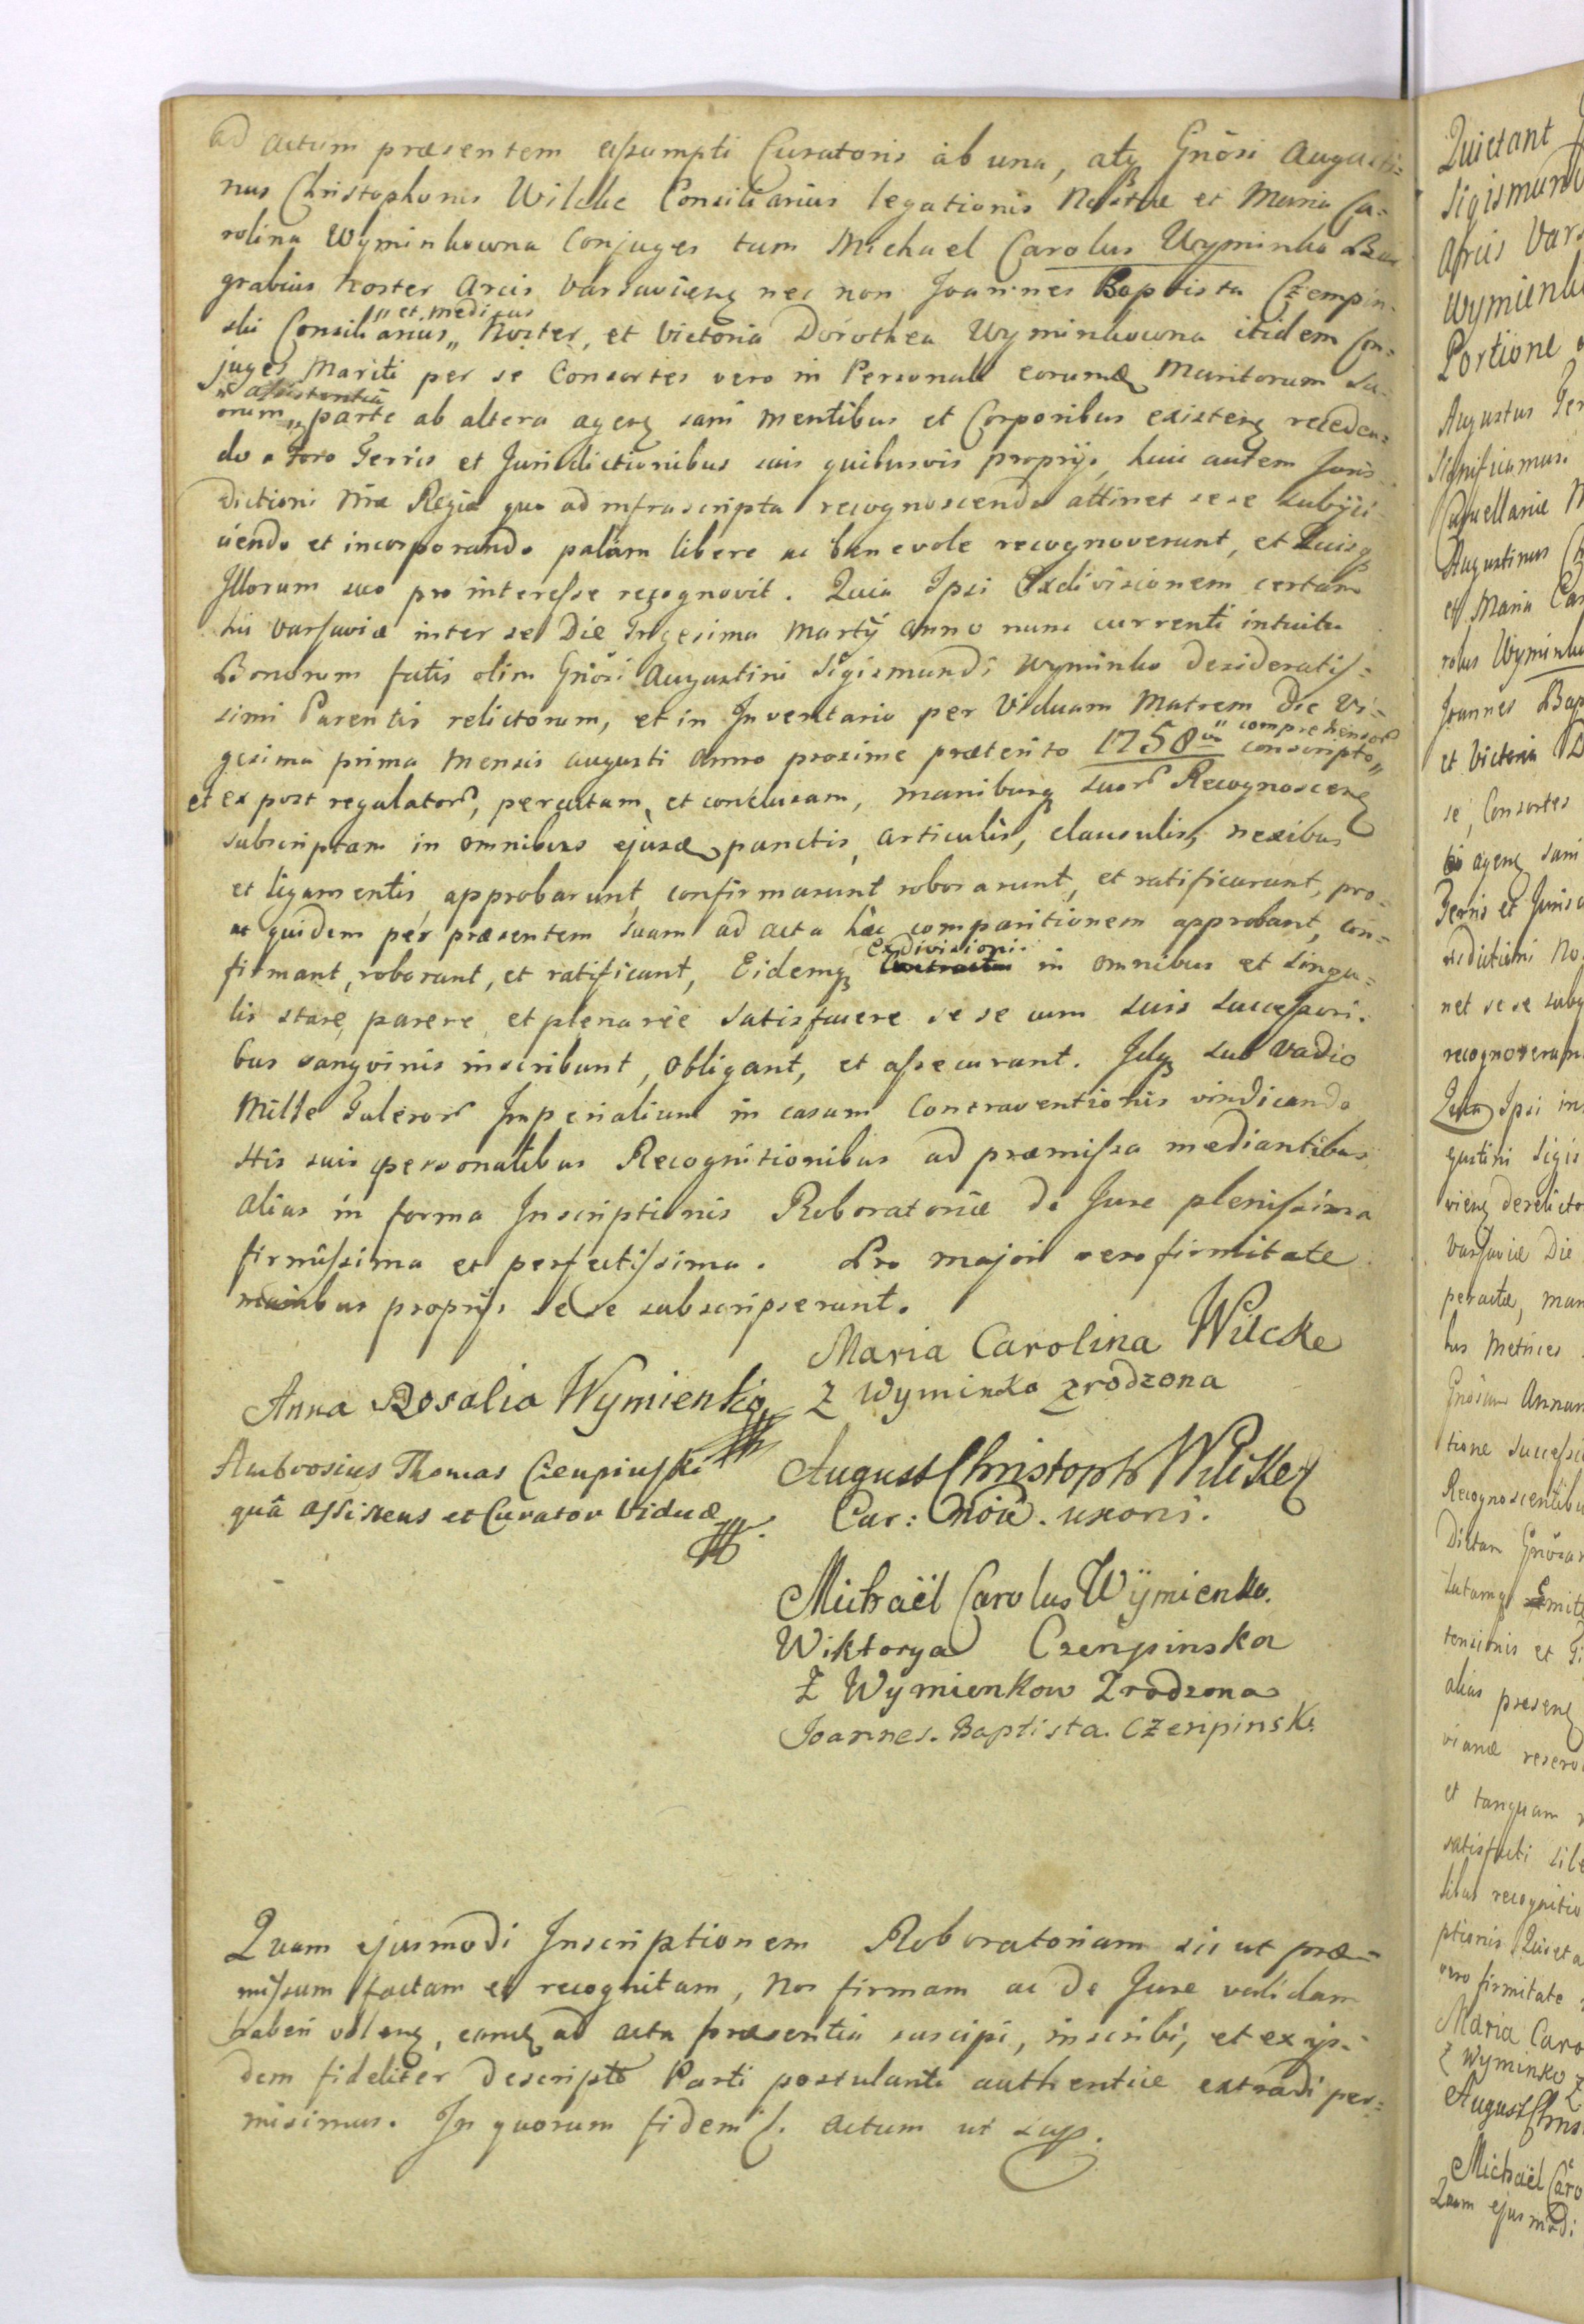 ad actum præsentem assumpti Curatoris ab una, atq Gnosi Augusti=
nus Christophorus Wilcke Consiliarius legationis Nostræ et Maria Ca=
rolina Wyminkowna Conjuges tum Michael Carolus Wyminko Bur
grabius Noster Arcis Varsavienq nec non Joannes Baptista Czempin-
ski Consiliarius „ et medicus „ Noster, et Victoria Dorothea Wyminkowna itidem Con=
juges Mariti per se Consortes vero in Personali eorundē Maritorum su-
orum „ assistentia „ parte ab altera agenq sani mentibus et Corporibus existenq receden=
do a foro Terris et Jurisdictionibus suis quibusvis proprijs, huic autem Juris-
dictioni Nræ Regiæ quo ad infrascripta recognoscenda attinet sese subjici-
ciendo et incorporando palàm libere ac benevole recognoverunt, et Quisq
Illorum suo pro interesse recognovit. Quia Ipsi Exdivisionem certam
hic Varsaviæ inter se Die Trigesima Martÿ Anno nunc currenti intuitu
Bonorum fatis olim Gnosi Augustini Sigismundi Wyminko desideratis=
simi Parentis relictorum, et in Inventario per Viduam Matrem Die Vi-
gesima prima Mensis Augusti Anno proxime præterito 1758vo „ comprehensor conscripto „
et ex post regulator, peractam, et conclusam, manibusq suor Recognoscenq
subscriptam in omnibus ejusdē punctis, articulis, clausulis, nexibus
et ligamentis approbarunt, confirmarunt roborarunt, et ratificarunt, pro=
ut quidem per præsentem suam ad acta hæc comparitionem approbant, con=
firmant, roborant, et ratificant, Eidemq Contractui exdivisioni in omnibus et singu=
lis stare, parere, et plenarie satisfacere se se cum suis Successori-
bus sangvinis inscribunt, obligant, et assecurant. Idq sub vadio
Mille Taleror Imperialium in casum Contraventionis vindicando
Htis suis personalibus Recognitionibus ad præmissa mediantibus
alias in forma Inscriptionis Roboratoriæ de Jure plenissima
firmissima et perfectissima. Pro majori vero firmitate
manibus proprijs sese subscripserunt.
Maria Carolina Wilcke
Z Wyminko zrodzona
Anna Rosalia Wymienko
Ambrosius Thomas Czenpinski
quâ assistens et Curator Viduæ
August Christoph Wilcke
Cur: nōie. uxoris.
Michaël Carolus Wÿmienko.
Wiktorya Czenpinska
Z Wymienkow Zrodzona
Joannes. Baptista. Czenpinski.
Quam ejusmodi Inscriptionem Roboratoriam sic ut præ=
missum factam et recognitam, Nos firmam ac de Jure validam
haberi volenq, eamq ad acta præsentia suscipi, inscribi, et ex ijs-
dem fideliter descriptā Parti postulanti authentice extradi per=
misimus. In quorum fidem ⁒. Actum ut sup.
Quietant
Sigismund
Arcis Vars
Wymienko
Portione
Augustus
Significamus
Cancellariæ
Augustinus Ch
et Maria Car
rolus Wyminko
Joannes Bap
et Victoria D
se, Consortes
agenq sani
Terris et Juris
risdictioni No
net se se subj
recognoverun
Quia Ipsi in
gustini Sigis
vienq derelicto
Varsaviæ Die
peractæ, man
hus Metrices
Gnosam Annam
tione successi
Recognoscentibu
Dictam Gnosam
tensionis et
alias presenq
vianæ reserva
et tanquam
satisfacti
libus recognitio
ptionis Quieta
vero firmitate
Maria Caro
Z Wyminko Z
August Chris
Michaël Caro
Quam ejusmodi